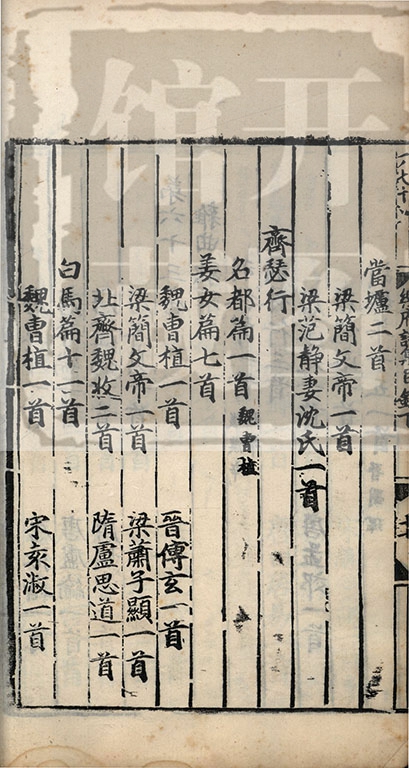 當壚二首
梁簡文帝一首
梁范静妻沈氏一首
齊瑟行
名都篇一首 魏曹植
美女篇七首
魏曹植一首 晉傅玄一首
梁簡文帝一首 梁蕭子顯一首
北齊魏收二首 隋盧思道一首
白馬篇十一首
魏曹植一首 宋袁淑一首
开
馆